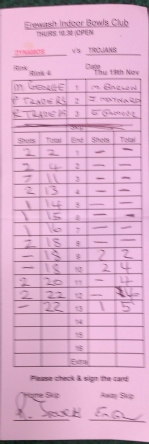 Erewash Indoor Bowls Club
THURS 10.30 (OPEN
DYNAMOS V's TROJANS
Rink Date
Rink 4 Thu 19th Nov
M 1 M BROWN
P 2 J MAYNARD
R 3 E
Skip
Shots Total End Shots Total
2 2 1 — —
2 4 2 — —
7 11 3 — —
2 13 4 — —
1 14 5 — —
1 15 6 — —
1 16 7 — —
2 18 8 — —
— 18 9 2 2
— 18 10 2 4
2 20 11 — 4
2 22 12 — 4
— 22 13 1 5
14
15
16
Extra
Please check & sign the card
Home Skip Away Skip